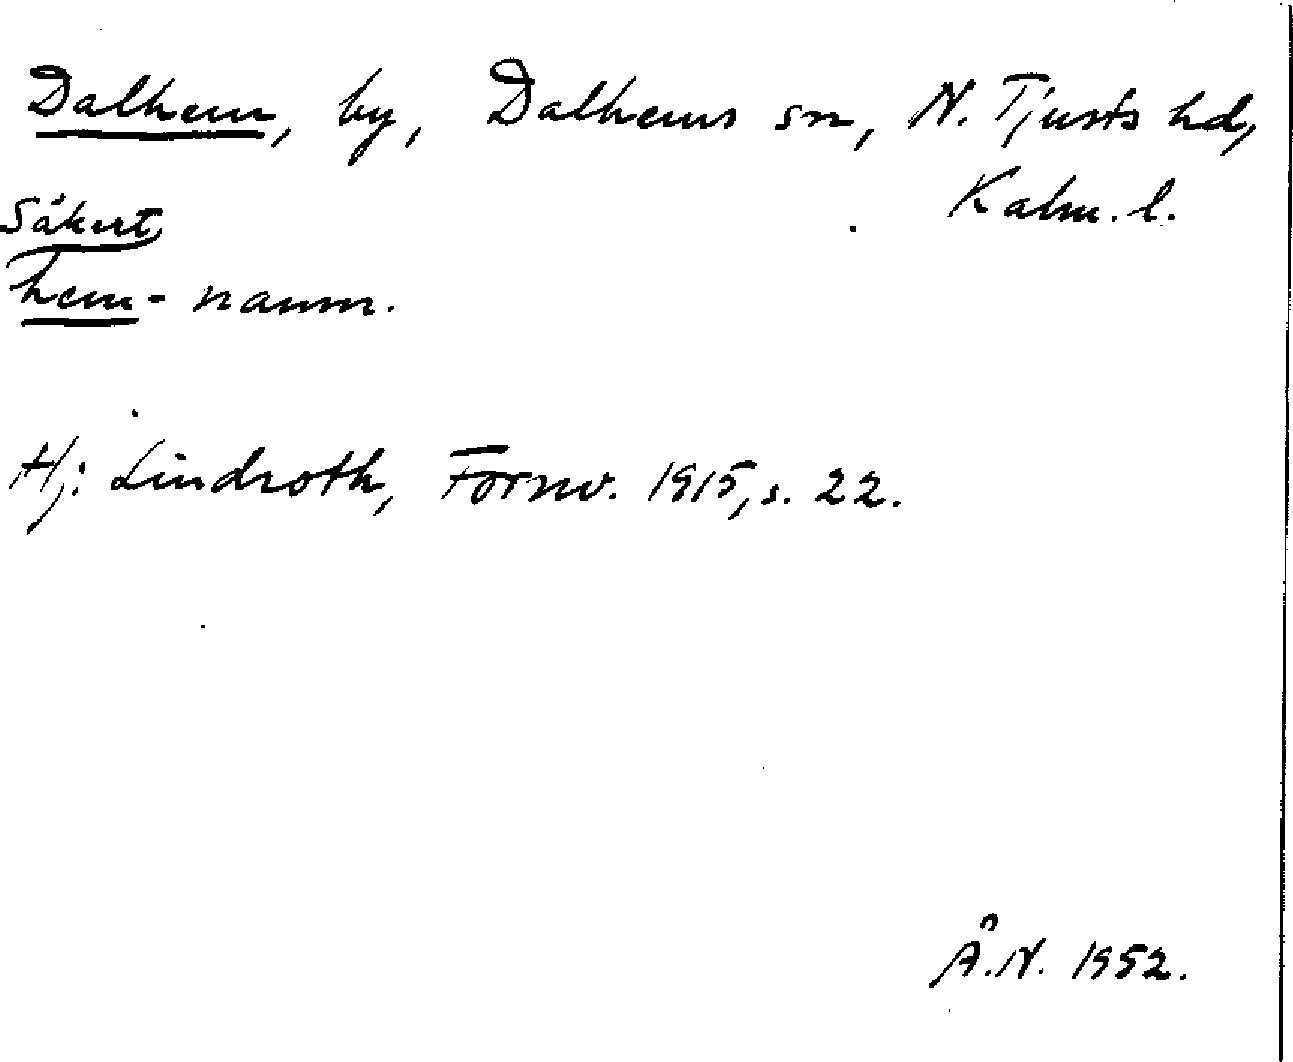 Dalhem, by, Dalhems sn, N. Tjusts hd,
Kalm. l.
Säkert
hem-namn.
Hj. Lindroth, Fornv. 1915, s. 22.
Å.N. 1952.